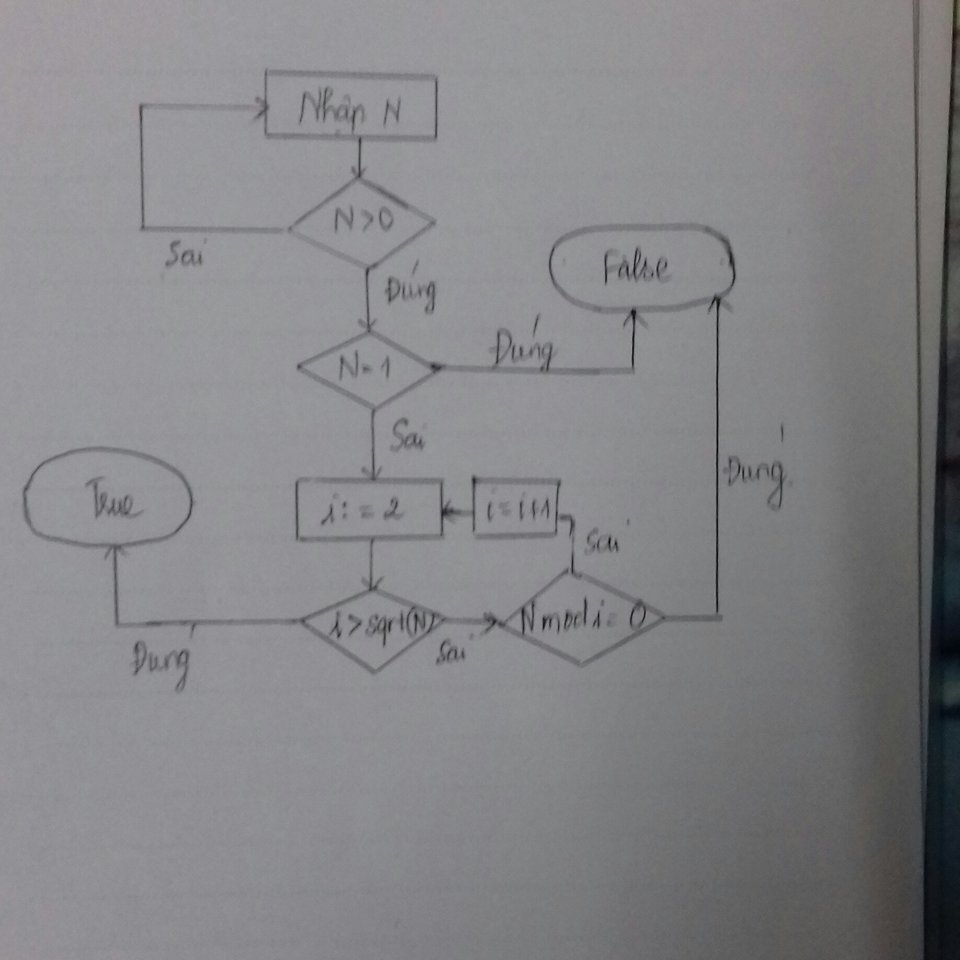 Nhập N
N>0
Sai
Đúng
False
N=1
Đúng
Sai
True
i:=2
i=i+1
Sai
Đúng
i>sqrt(N)
Sai
N mod i=0
Đúng